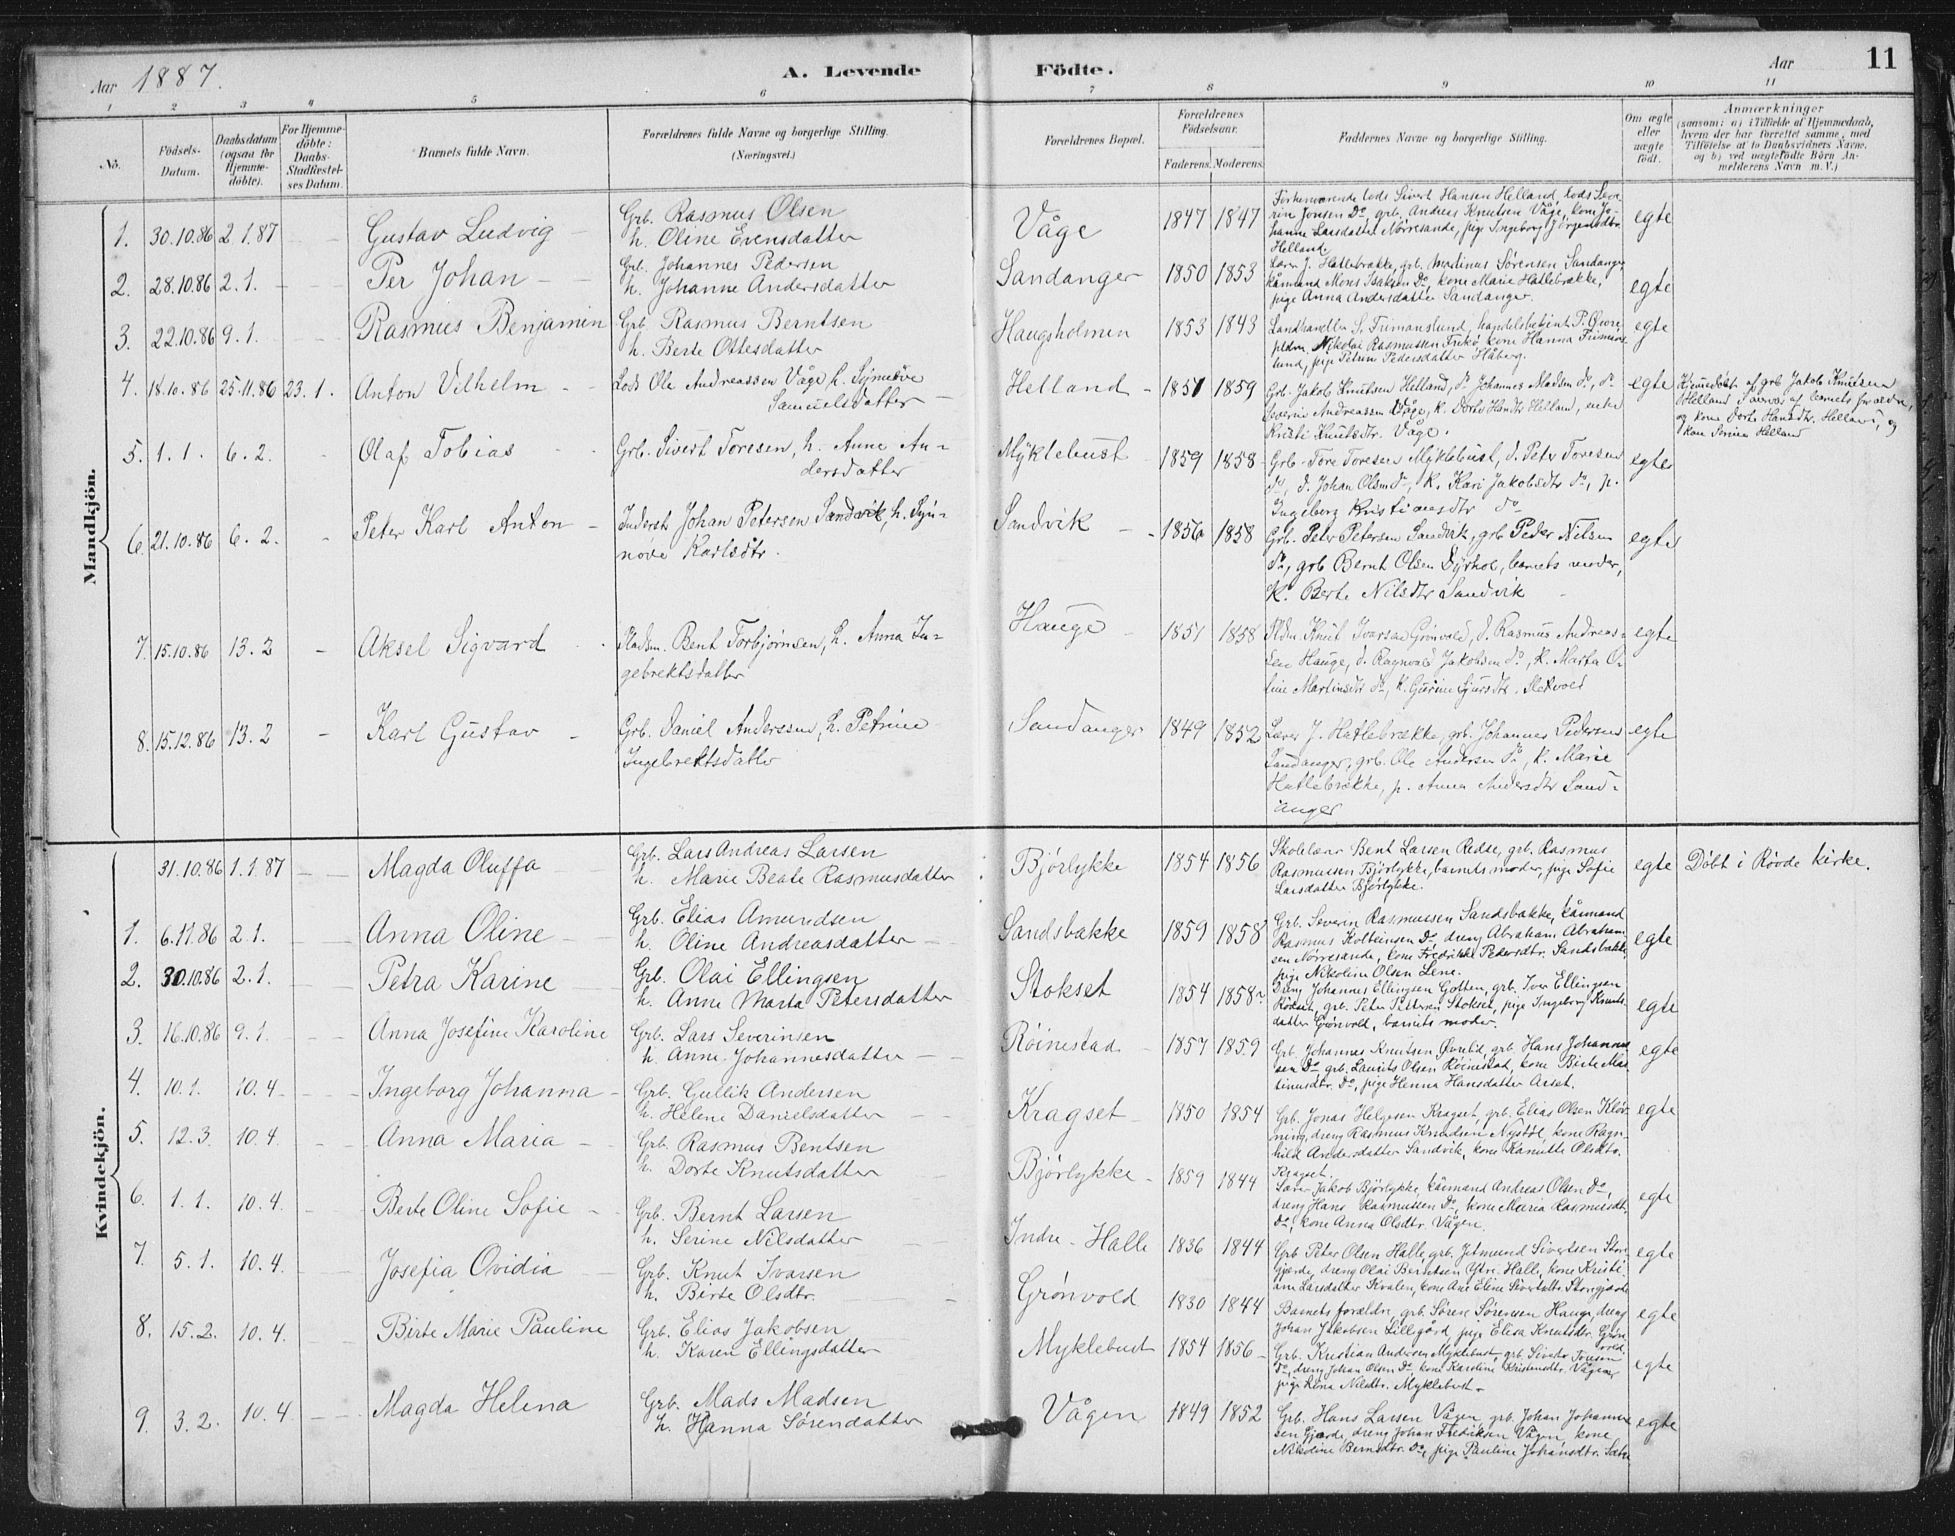 Aar 1887. A. Levende Födte. Aar 11
1 2 3 4 5 6 7 8 9 10 11
No.
Födsels-Datum.
Daabsdatum (ogsaa for Hjemme-döbte).
For Hjemme-döbte: Daabs-Stadfæstel-ses Datum.
Barnets fulde Navn.
Forældrenes fulde Navne og borgerlige Stilling.
(Næringsvei.)
Forældrenes Bopæl.
Forældrenes Födselsaar.
Faderens. Moderens.
Faddernes Navne og borgerlige Stilling.
Om ægte eller uægte födt.
Anmærkninger
(saasom: a) i Tilfælde af Hjemmedaab,
hvem der har forrettet samme, med
Tilföielse af to Daabsvidners Navne,
og b) ved uægtefödte Börn An-
melderens Navn m. V.)
Mandkjön.
1. 30.10.86 2.1.87 – – Gustav Ludvig – Grb. Rasmus Olsen
h. Oline Evensdatter
Våge 1847 1847
Lods Sivert Hansen Helland, lods
Jonsen Do, grb. Andreas Knutsen Våge, kone Jo-
hanne Larsdatter Nørresande, pige Ingeborg Jørgensdtr.
Helland.
egte
2. 28.10.86 2.1. – – Per Johan – – Grb. Johannes Pedersen
h. Johanne Andersdatter
Sandanger 1850 1853
Lærer J. Hatlebrække, grb. Martinus Sørensen Sandanger,
kårmand Mons Isaksen Do, kone Marie Hatlebrække,
pige Anna Andersdatter Sandanger.
egte
3. 22.10.86 9.1. – – Rasmus Benjamin Grb. Rasmus Berntsen
h. Berte Ottesdatter
Haugsholmen 1853 1843
Landhandler S. Frimanslund, handelsbetjent P.
Nikolai Rasmussen kone Hanna Frimans-
lund, pige Petrine Pedersdatter Håberg.
egte
4. 18.10.86 25.11.86 23.1. Anton Vilhelm – – Lods Ole Andreassen Våge, h. Synnøve
Samuelsdatter –
Helland – 1851 1859
Grb. Jakob Knutsen Helland, do Johannes Madsen do, do
Severin Andreassen Våge, k. Dorte Handtr Helland, enke
Kristi Knutsdtr. Våge.
egte
Hjemmedøbt af grb Jakob Knutsen
Helland
og kone Dorte Hansdtr. Helland, og
kone Helland
5. 1.1. 6.2. Olaf Tobias – – Grb. Sivert Toresen, h. Anne An-
dersdatter
Myklebust 1859 1858
Grb. Tore Toresen Myklebust, d. Peter Toresen
do, d. Johan Olsen do, k. Kari Jakobsdtr do, p.
Ingeborg Kristiansdtr do
egte
6. 21.10.86 6.2. – Peter Karl Anton – Inderst Johan Petersen Sandvik, h. Syn-
nøve Karlsdtr.
Sandvik – 1856 1858
Grb. Peter Petersen Sandvik, grb Peder Nilsen
do, grb Bernt Olsen Dyrhol, barnets moder,
K. Berte Nilsdtr Sandvik –
egte
7. 15.10.86 13.2 – Aksel Sigvard – Pladsm. Bent Torbjørnsen, h. Anna In-
gebrektsdatter
Hauge – 1851 1858
Pldm. Knut Ivarsen Grønvold, d. Rasmus Andreas-
sen Hauge, d. Ragnvald Jakobsen do, k. Marta O-
line Martinsdtr do, k. Gurine Sjursdtr. Sletvold
egte
8. 15.12.86 13.2 – Karl Gustav – Grb. Daniel Anderssen, h. Petrine
Ingebrektsdatter
Sandanger 1849 1852
Lærer J. Hatlebrække, grb. Johannes Pedersen
Sandanger, grb. Ole Andersen do, k. Marie
Hatlebrække, p. Anna Andersdtr Sand-
anger
egte
Kvindekjön.
31.10.86 1.1.87 – – Magda Oluffa – Grb. Lars Andreas Larsen
h. Marie Beate Rasmusdatter
Bjørlykke 1854 1856
Skolelærer Bent Larsen Redse, grb. Rasmus
Rasmussen Bjørlykke, barnets moder, pige Sofie
Larsdatter Bjørlykke.
egte Döbt i Røvde kirke.
1. 6.11.86 2.1. – – Anna Oline – Grb. Elias Amundsen
h. Oline Andreasdatter – –
Sandsbakke 1859 1858
Grb. Severin Rasmussen Sandsbakke, kårmand
Rasmus Kolbeinsen Do, dreng Abraham Abraham-
sen Nørresande, kone Fredrikke Pedersdtr. Sandsbakke,
pige Nikoline Olsen Lene.
egte
2. 30.10.86 2.1. – – Petra Karine Grb. Olai Ellingsen
h. Anne Marta Petersdatter
Stokset 1854 1858
Dreng Johannes Ellingsen Gotten, grb. Iver Ellingsen
Rødset, grb. Peter Pettersen Stokset, pige Ingeborg Knuts-
datter Grønvold, barnets moder.
egte
3. 16.10.86 9.1. – – Anna Josefine Karoline Grb. Lars Severinsen
h. Anne Johannesdatter – –
Röinestad 1857 1859
Grb. Johannes Knutsen Øvrelid, grb. Hans Johannes-
sen Do, grb. Laurits Olsen Röinestad, kone Birte Mar-
tinusdtr. Do, pige Henna Hansdatter Årset.
egte
4. 10.1. 10.4. – – Ingeborg Johanna – Grb. Gullik Andersen
h. Helene Danielsdatter – –
Kragset – 1850 1854
Grb. Jonas Helgesen Kragset, grb. Elias Olsen Kløv-
ning, dreng Rasmus Knudsen Nystøl, kone Ragn-
hild Andersdatter Sandvik, kone Kanutte Olsdtr.
Kragset.
egte
5. 12.3. 10.4. – – Anna Maria – Grb. Rasmus Bentsen
h. Dorte Knutsdatter
Bjørlykke – 1859 1844
Lærer Jakob Bjørlykke, kårmand Andreas Olsen Do,
dreng Hans Rasmussen Do, kone Maria Rasmusdtr.
Do, kone Anna Olsdtr. Vågen.
egte
6. 1.1. 10.4. – – Berte Oline Sofie – Grb. Bernt Larsen
h. Serine Nilsdatter – –
Indre-Halle 1836 1844
Grb. Peter Olsen Halle, grb. Jetmund Sivertsen Stor-
gjærde, dreng Olai Berntsen Ytre-Halle, kone Kristi-
ane Larsdatter Kvalen, kone Ane Eline Sivertsdtr. Storegjærde
egte
7. 5.1. 10.4. – – Josefia Ovidia – Grb. Knut Ivarsen
h. Birte Olsdtr. – –
Grønvold 1830 1844
Barnets forældre, grb. Søren Sørensen Hauge, dreng
Johan Jakobsen Lillegård, pige Elisa Knutsdtr. Grøn-
vold.
egte
8. 15.2. 10.4. – – Birte Marie Pauline Grb. Elias Jakobsen
h. Karen Ellingsdatter
Myklebust 1854 1856
Grb. Kristian Andersen Myklebust, grb. Sivert Toresen
Do, dreng Johan Olsen Do, kone Karoline Kristensdtr. Vågen,
pige Lena Nilsdtr. Myklebust.
egte
9. 3.2. 10.4 – – Magda Helena Grb. Mads Madsen
h. Hanna Sørensdatter
Vågen 1849 1852
Grb. Hans Larsen Vågen, grb. Johan Johannes-
sen Gjærde, dreng Johan Fredriksen Vågen, kone
Nikoline Berntsdtr. Do, pige Pauline Johansdtr.
egte